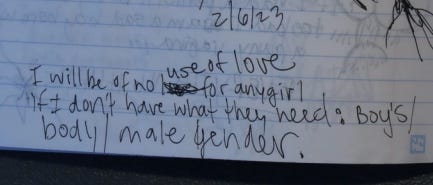 2/6/23
use of love
I will be of no for any girl
"If I don't have what they need: Boy's/
body/ male gender.